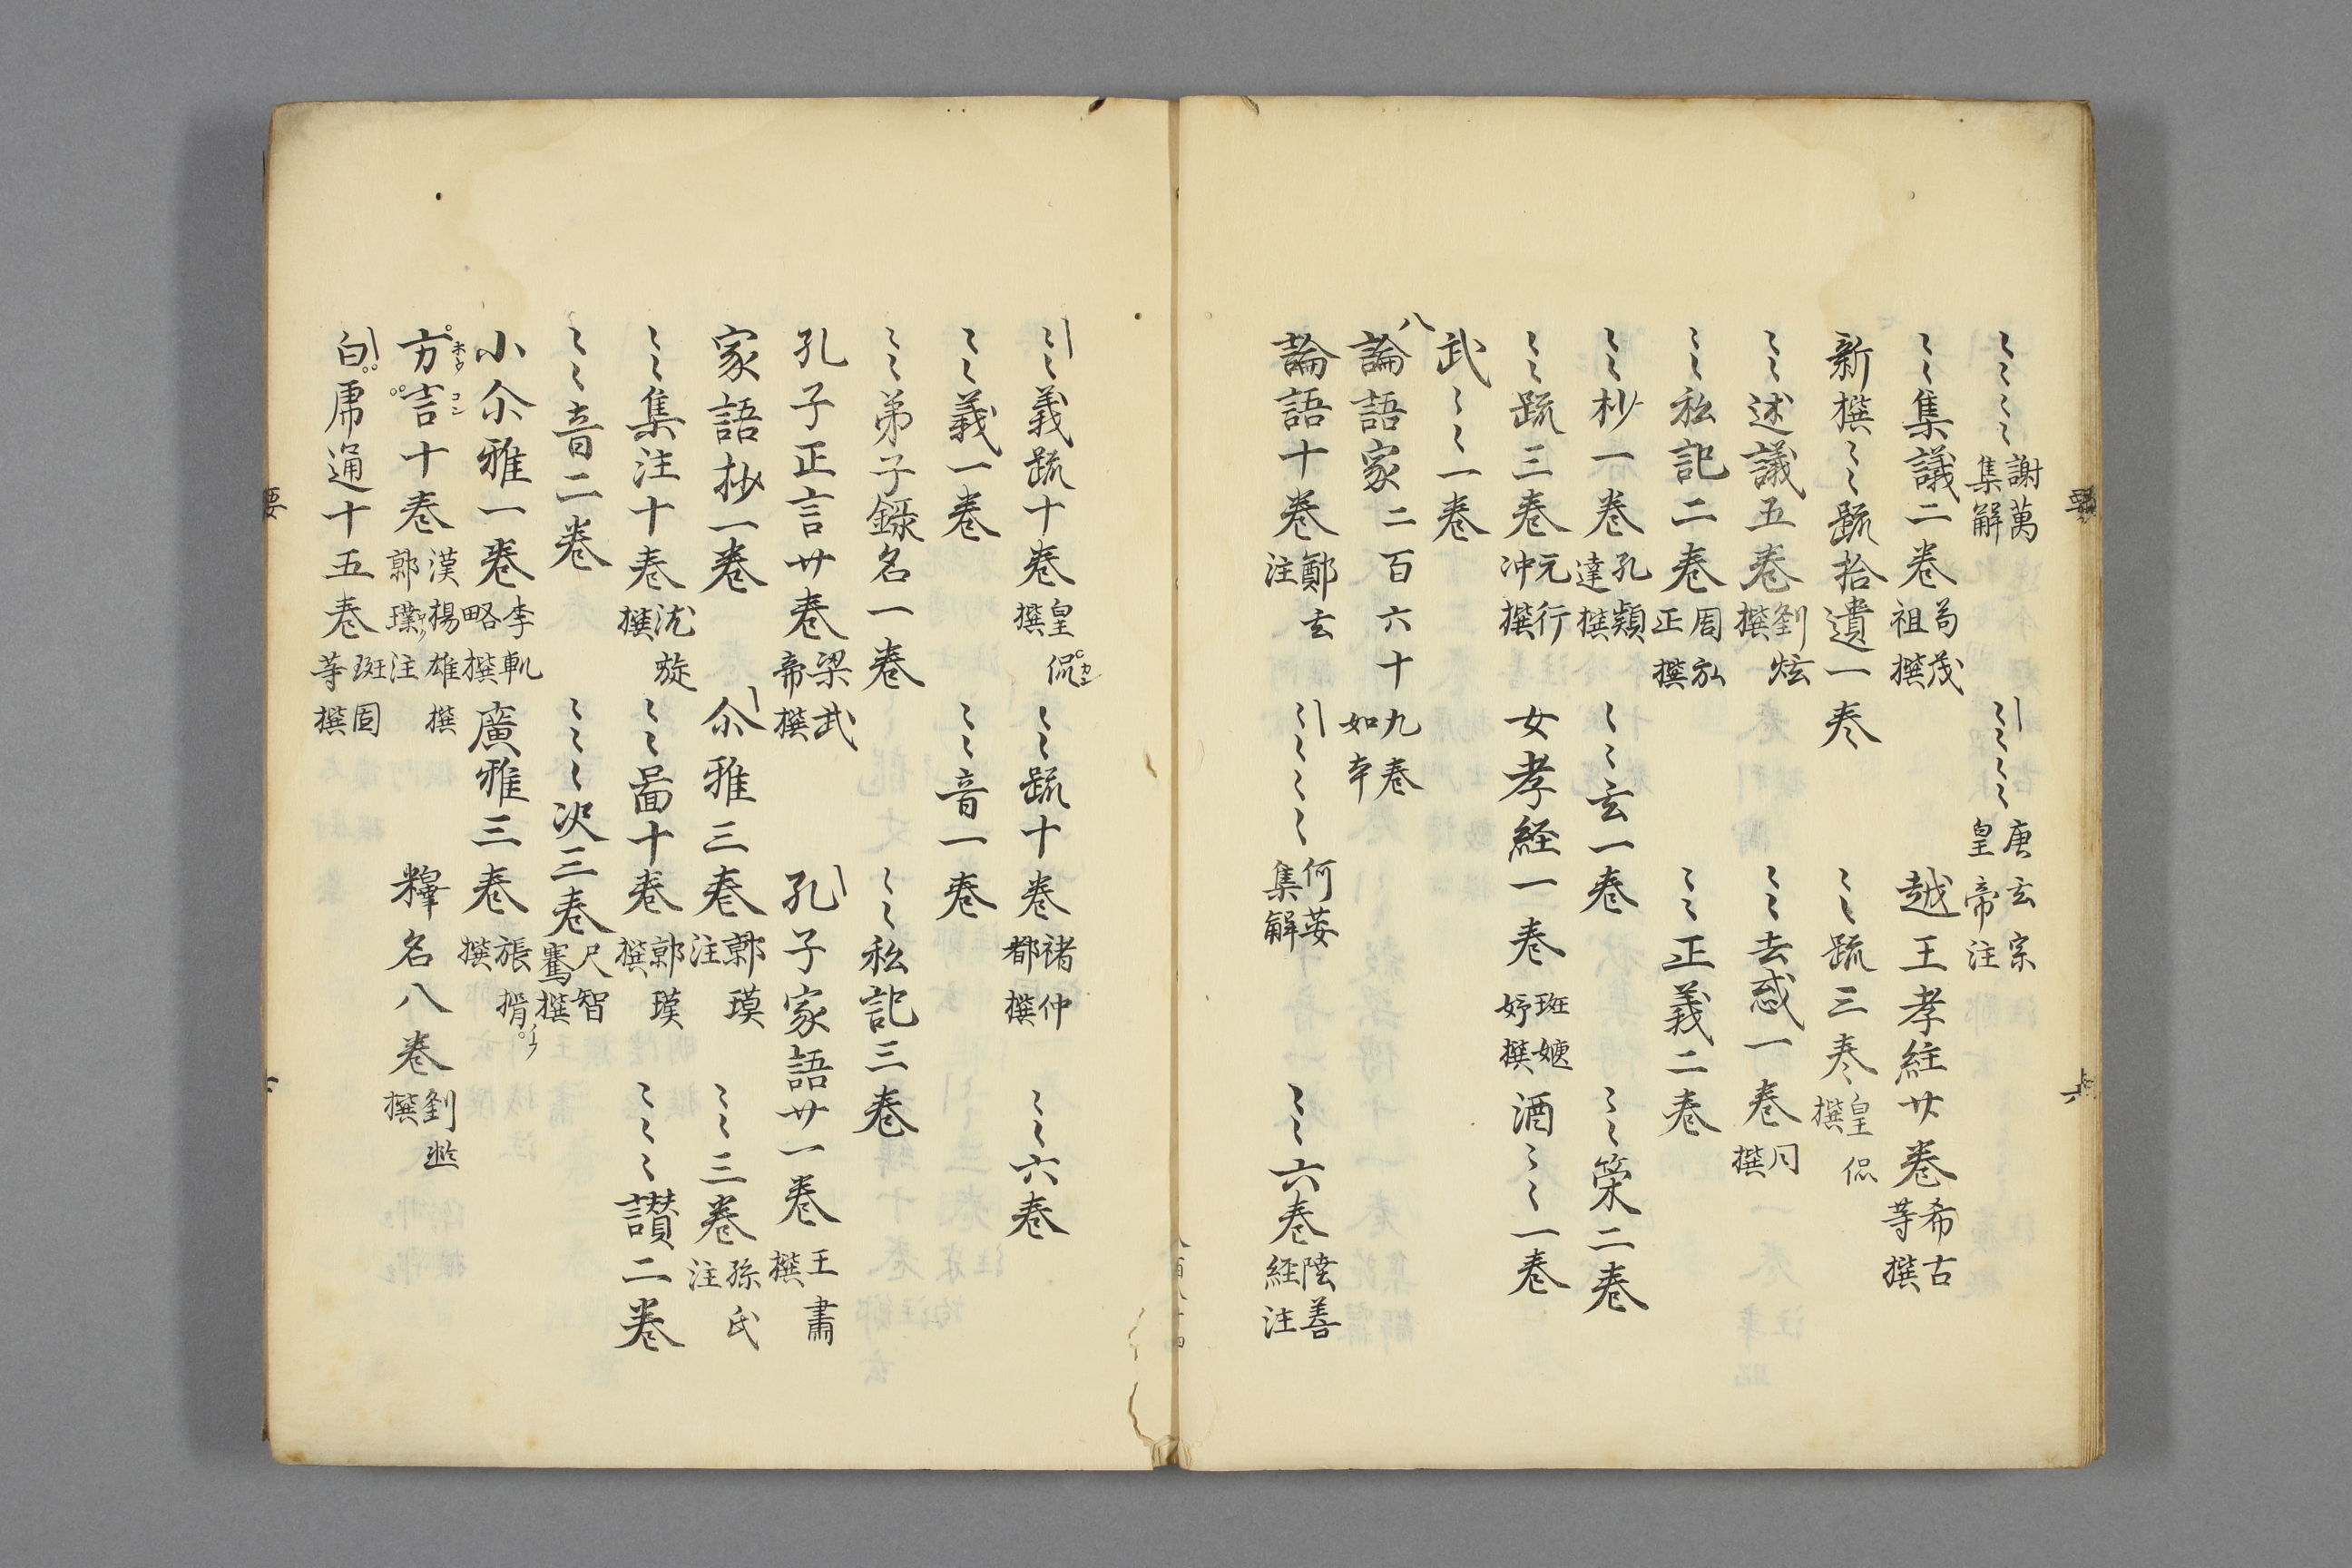 〻〻〻 謝萬集解 〻〻〻〻 唐玄宗皇帝注
〻〻集議二巻 荀茂祖撰 越王孝経廿巻 希古等撰
新撰〻〻䟽拾遺一巻 〻〻䟽三巻 皇侃撰
〻〻述議五巻 劉炫撰 〻〻去惑一巻 同撰
〻〻私記二巻 周弘正撰 〻〻正義二巻
〻〻抄一巻 孔穎達撰 〻〻玄一巻 〻〻策二巻
〻〻䟽三巻 元行冲撰 女孝経一巻 班婕妤撰 酒〻〻一巻
武〻〻一巻
八
論語家 二百六十九巻如本
論語十巻 鄭玄注 〻〻〻〻 何晏集解 〻〻六巻 陸善経注
〻〻義䟽十巻 皇侃撰 〻〻䟽十巻 褚仲都撰 〻〻六巻
〻〻義一巻 〻〻音一巻
〻〻弟子錄名一巻 〻〻私記三巻
孔子正言廿巻 梁武帝撰 孔子家語廿一巻 王肅撰
家語抄一巻 尒雅三巻 郭璞注 〻〻三巻 孫氏注
〻〻集注十巻 沈旋撰 〻〻啚十巻 郭璞撰 〻〻〻讃二巻
〻〻音二巻 〻〻〻決三巻 尺智騫撰
小尒雅一巻 李軌略撰 廣雅三巻 張揖撰
方言十巻 漢揚雄撰郭璞注 釋名八巻 劉熙撰
白虎通十五巻 班固等撰